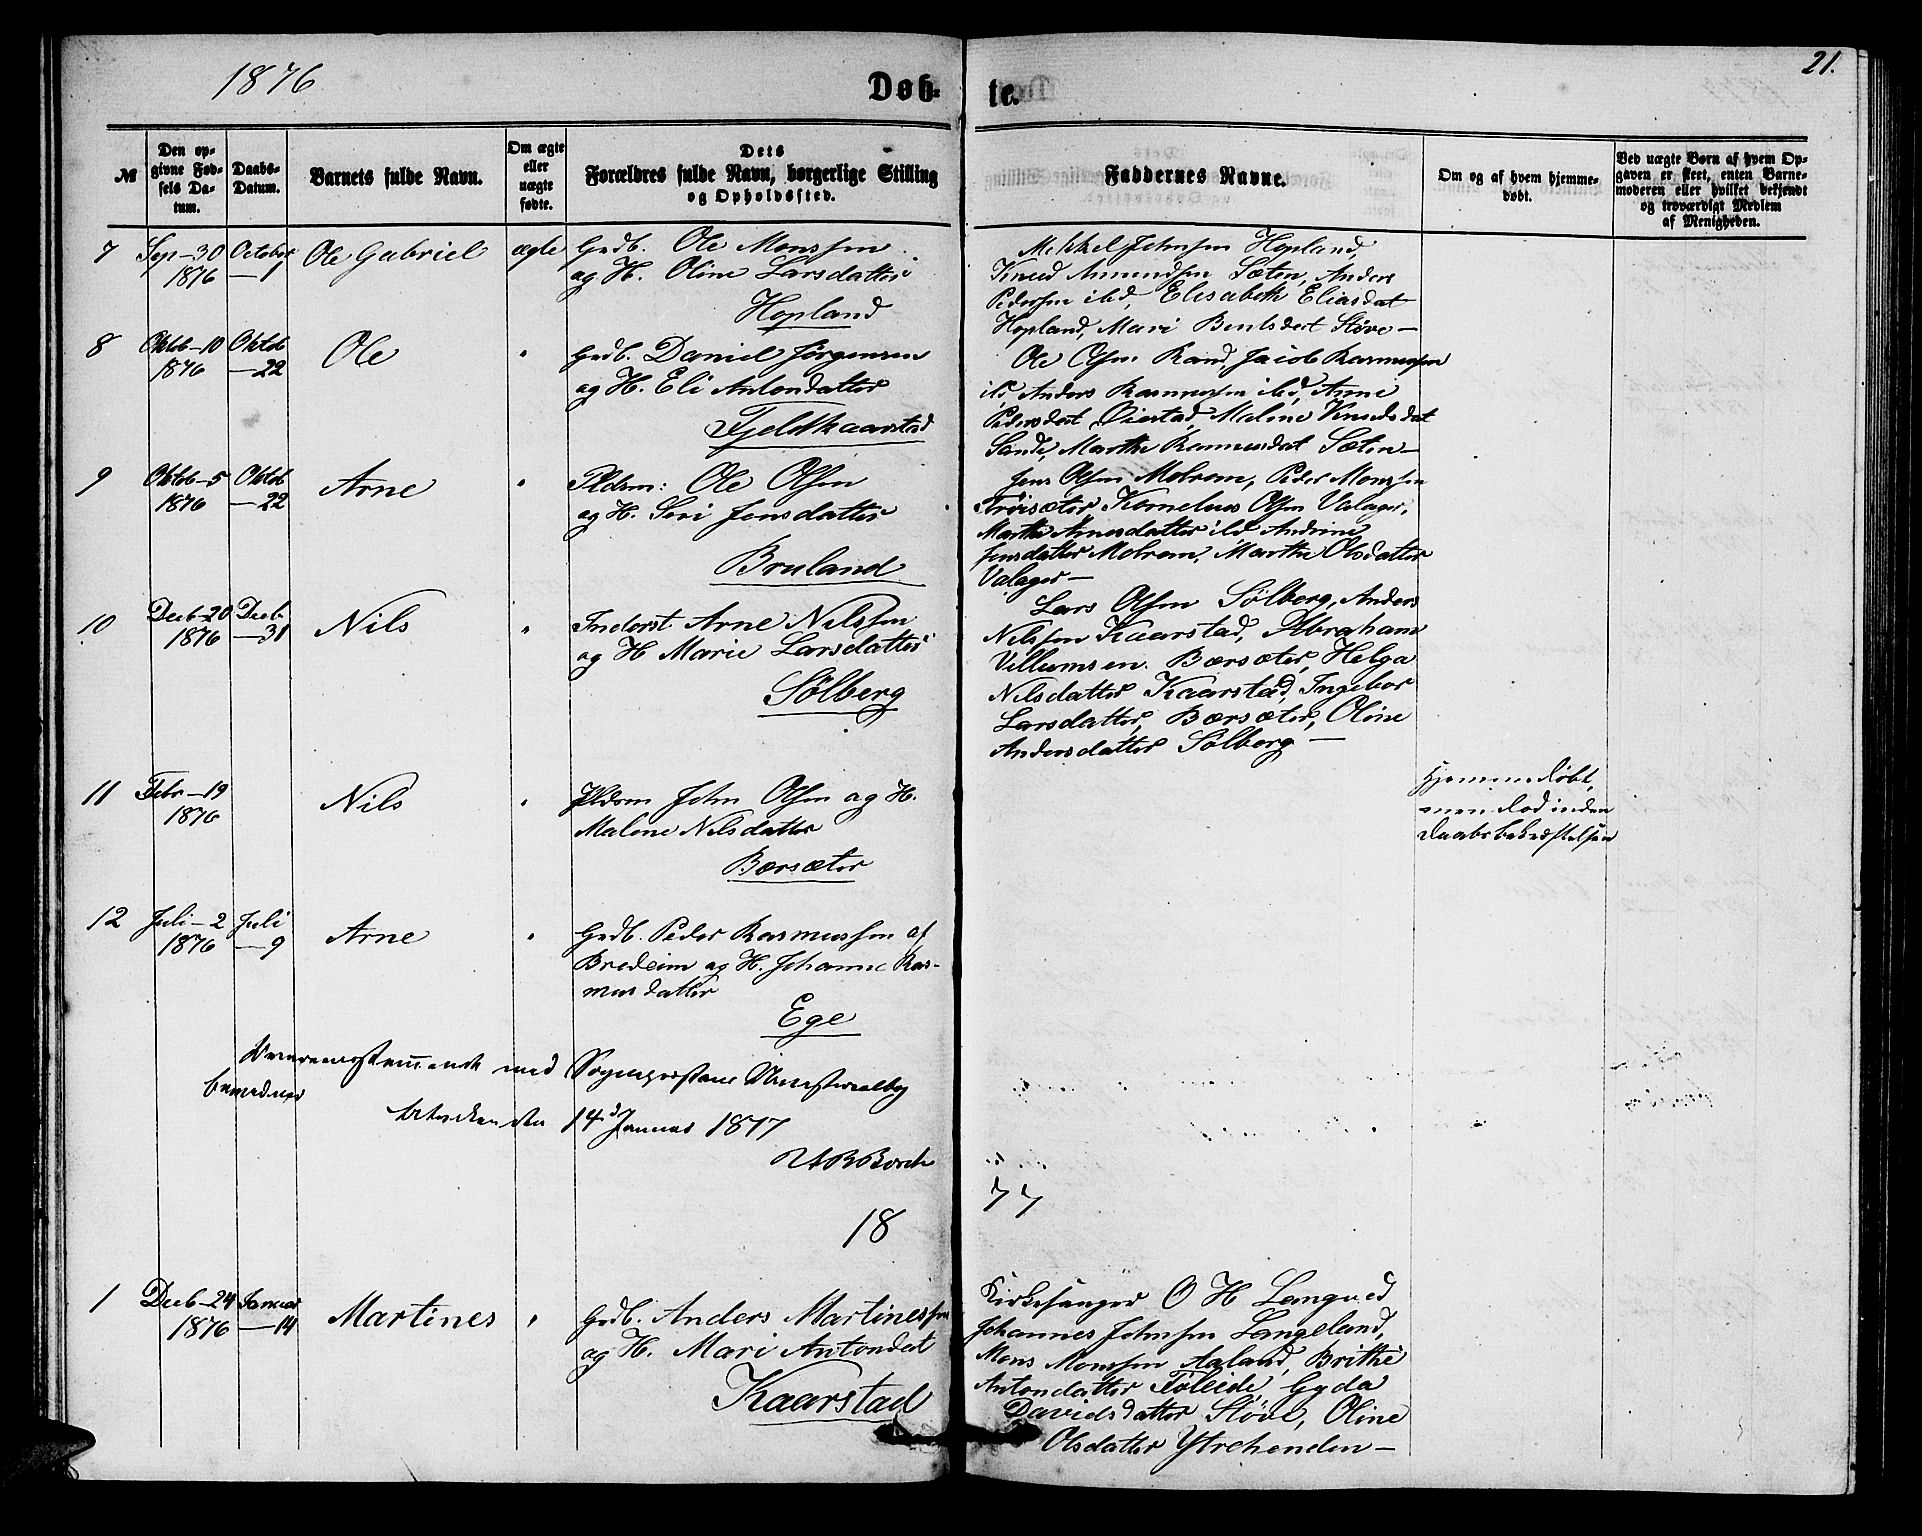 1876
Døb-
te.
21.
№
Den op-
givne Fød-
sels Da-
tum.
Daabs-
Datum.
Barnets fulde Navn.
Om ægte
eller
uægte
fødte.
Dets
Forældres fulde Navn, borgerlige Stilling
og Opholdssted.
Faddernes Navne.
Om og af hvem hjemme-
døbt.
Ved uægte Børn af hvem Op-
gaven er skeet, enten Barne-
moderen eller hvilket bekjendt
og troværdigt Medlem
af Menigheden.
7 Sep-30 October Ole Gabriel ægte Grdb. Ole Monssen
1876 —1 og H. Oline Larsdatter
Hopland
Mikkel Johnsen Hopland,
Knud Amundsen Sæten, Anders
Pederssen ibd, Elisabeth Eliasdat
Hopland, Mari Bentsdat Støve—
8 Oktob-10 Oktob Ole " Grdb. Daniel Jørgensen
1876 —22 og H. Eli Antondatter
Fjeldkaarstad
Ole Olsen Rand, Jacob Rasmussen
ibd Anders Rasmussen ibd, Anne
Pedersdat Øiestad, Malene Knudsdat
Sande, Marthe Rasmusdat Sæten—
9 Oktob-5 Oktob Arne " Pldsm: Ole Olsen
1876 —22 og H. Siri Jensdatter
Bruland
Jens Olsen Molrem, Peder Monssen
Kornelius Olsen Valager,
Marthe Arnesdatter ibd Andrine
Jensdatter Molrem, Marthe Olsdatter
Valager—
10 Decb-20 Decb Nils " Inderst Arne Nilssen
1876 —31 og H Marie Larsdatter
Sølberg
Lars Olsen Sølberg, Anders
Nilssen Kaarstad, Abraham
Villumsen Børsæter, Helga
Nilsdatter Kaarstad, Ingebor
Larsdatter, Børsæter, Oline
Andersdatter Sølberg—
11 Febr-19 Nils " Pldsm John Olsen og H.
1876 Malene Nilsdatter
Børsæter
Hjemmedøbt,
men død inden
Daabsbekræftelsen
12 Juli-2 Juli Arne " Grdb. Peder Rasmussen af
1876 —9 Bredeim og H. Johanne Ras-
musdatter
Ege
Overensstemmende med Sognepræstens Ministerialbog
bevidnes
14d Januar 1877
18
77
1 Decb-24 Januar Martines " Grdb. Anders Martinessen
1876 —14 og H. Mari Antondat
Kaarstad
Kirkesanger O H Langved
Johannes Johnsen Langeland,
Mons Monssen Aaland, Brithe
Antondatter Føleide, Gyda
Davidsdatter Støve, Oline
Olsdatter Ytrehenden—